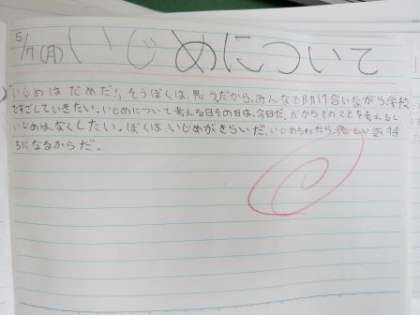 5/7(月) いじめについて
いじめはだめだ!、そうぼくは、思うだから、みんなで助け合いながら学校
ですごしていきたい。いじめについて考える日その日は、今日だ。だからそのことを考えると
いじめは、なくしたい。ぼくはいじめがきらいだ。いじめられたら、悲しい気持
ちになるからだ。